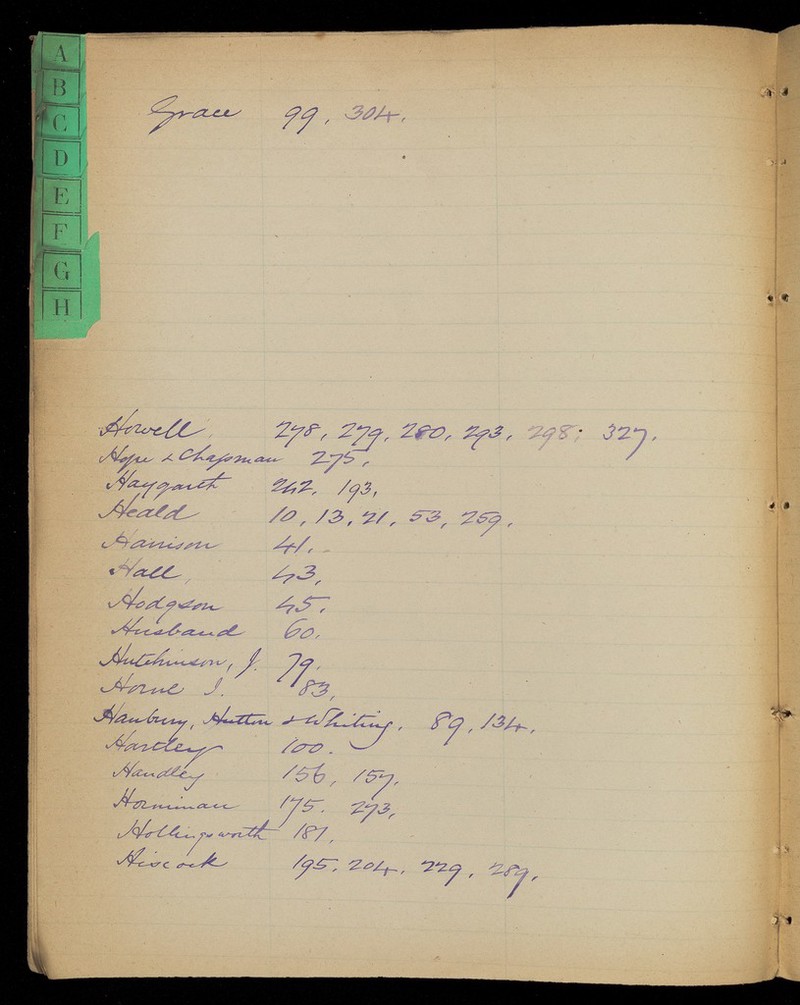 A
B
C
D
E
F
G
H
Grace 99, 304.
Howell. 278, 279, 280, 293, 298; 327.
Hope & Chapman 275.
Haygarth 242. 193.
Heald 10, 13, 21, 53, 259.
Harrison 41.
Hall, 43,
Hodgson 45.
Husband 60.
Hutchinson, J. 79.
Horne J. 83,
Hanbury, Hutton & Whiting. 89, 134.
Hartley 100.
Handley 156, 157.
Horniman 175. 273,
Hollingsworth 187.
Hiscock 195. 204. 229, 289.